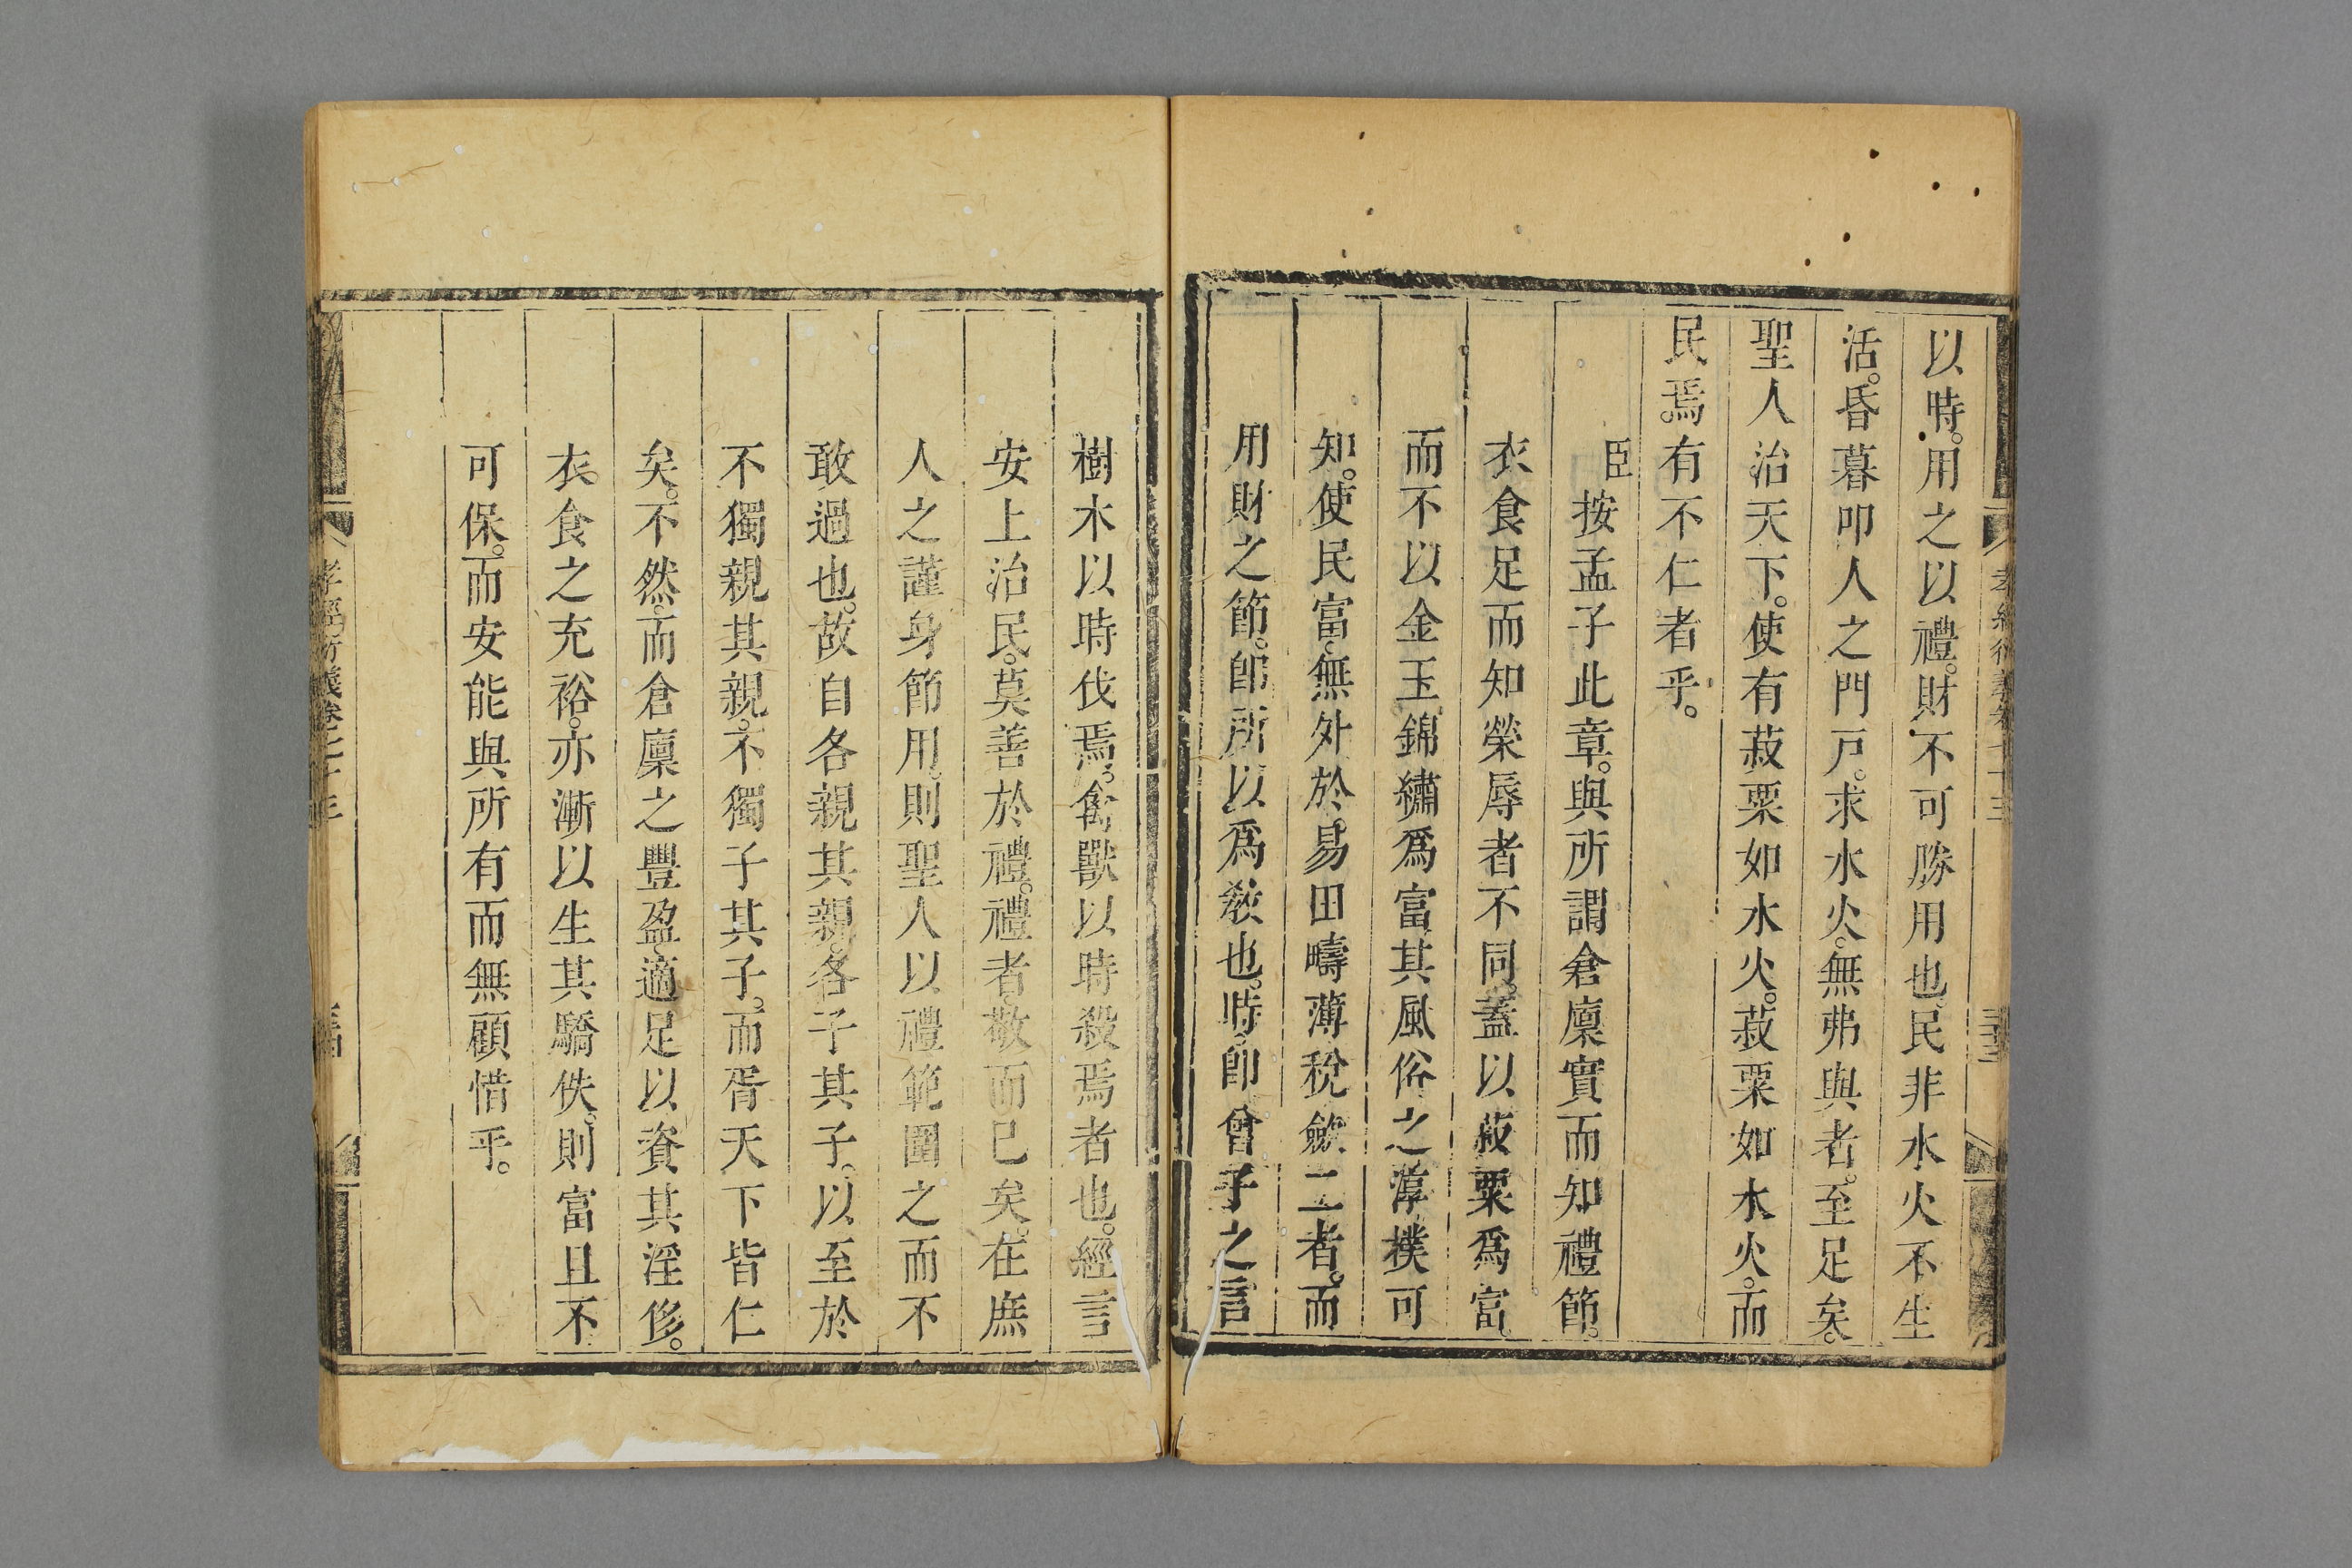 以時。用之以禮。財不可勝用也。民非水火不生
活。昏暮叩人之門戸。求水火。無弗與者。至足矣。
聖人治天下。使有菽粟如水火。菽粟如水火。而
民焉。有不仁者乎。
臣按孟子此章。與所謂倉廩實而知禮節。
衣食足而知榮辱者不同。蓋以菽粟爲富。
而不以金玉錦繡爲富。其風俗之淳樸可
知。使民富。無外於。易田疇薄稅斂二者。而
用財之節。卽所以爲敎也。時。卽曾子之言
樹木以時伐焉。禽獸以時殺焉者也。經言
安上治民。莫善於禮。禮者。敬而已矣。在庶
人之謹身節用。則聖人以禮範圍之而不
敢過也。故自各親其親。各子其子。以至於
不獨親其親。不獨子其子。而胥天下皆仁
矣。不然。而倉廩之豐盈。適足以資其淫侈。
衣食之充裕。亦漸以生其驕佚。則富且不
可保。而安能與所有而無顧惜乎。
孝經衍義卷七十三